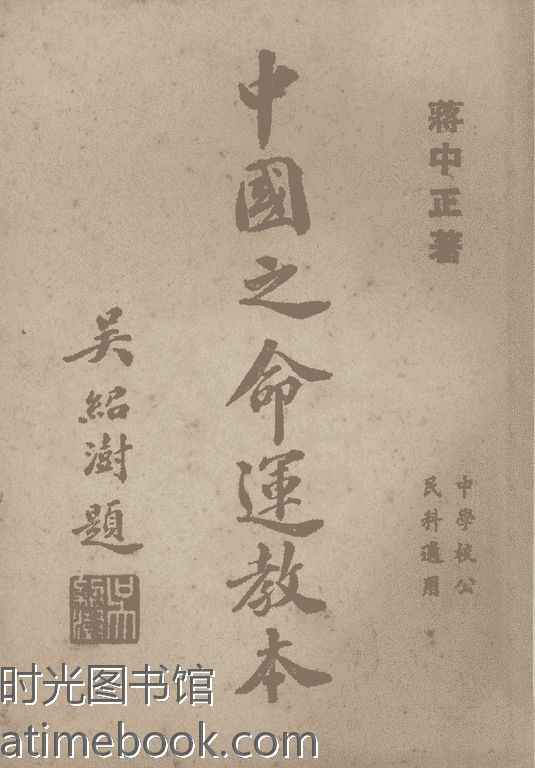 蔣中正著
中學校公
民科適用
中國之命運教本
吳紹澍題
时光图书馆
atimebook.com